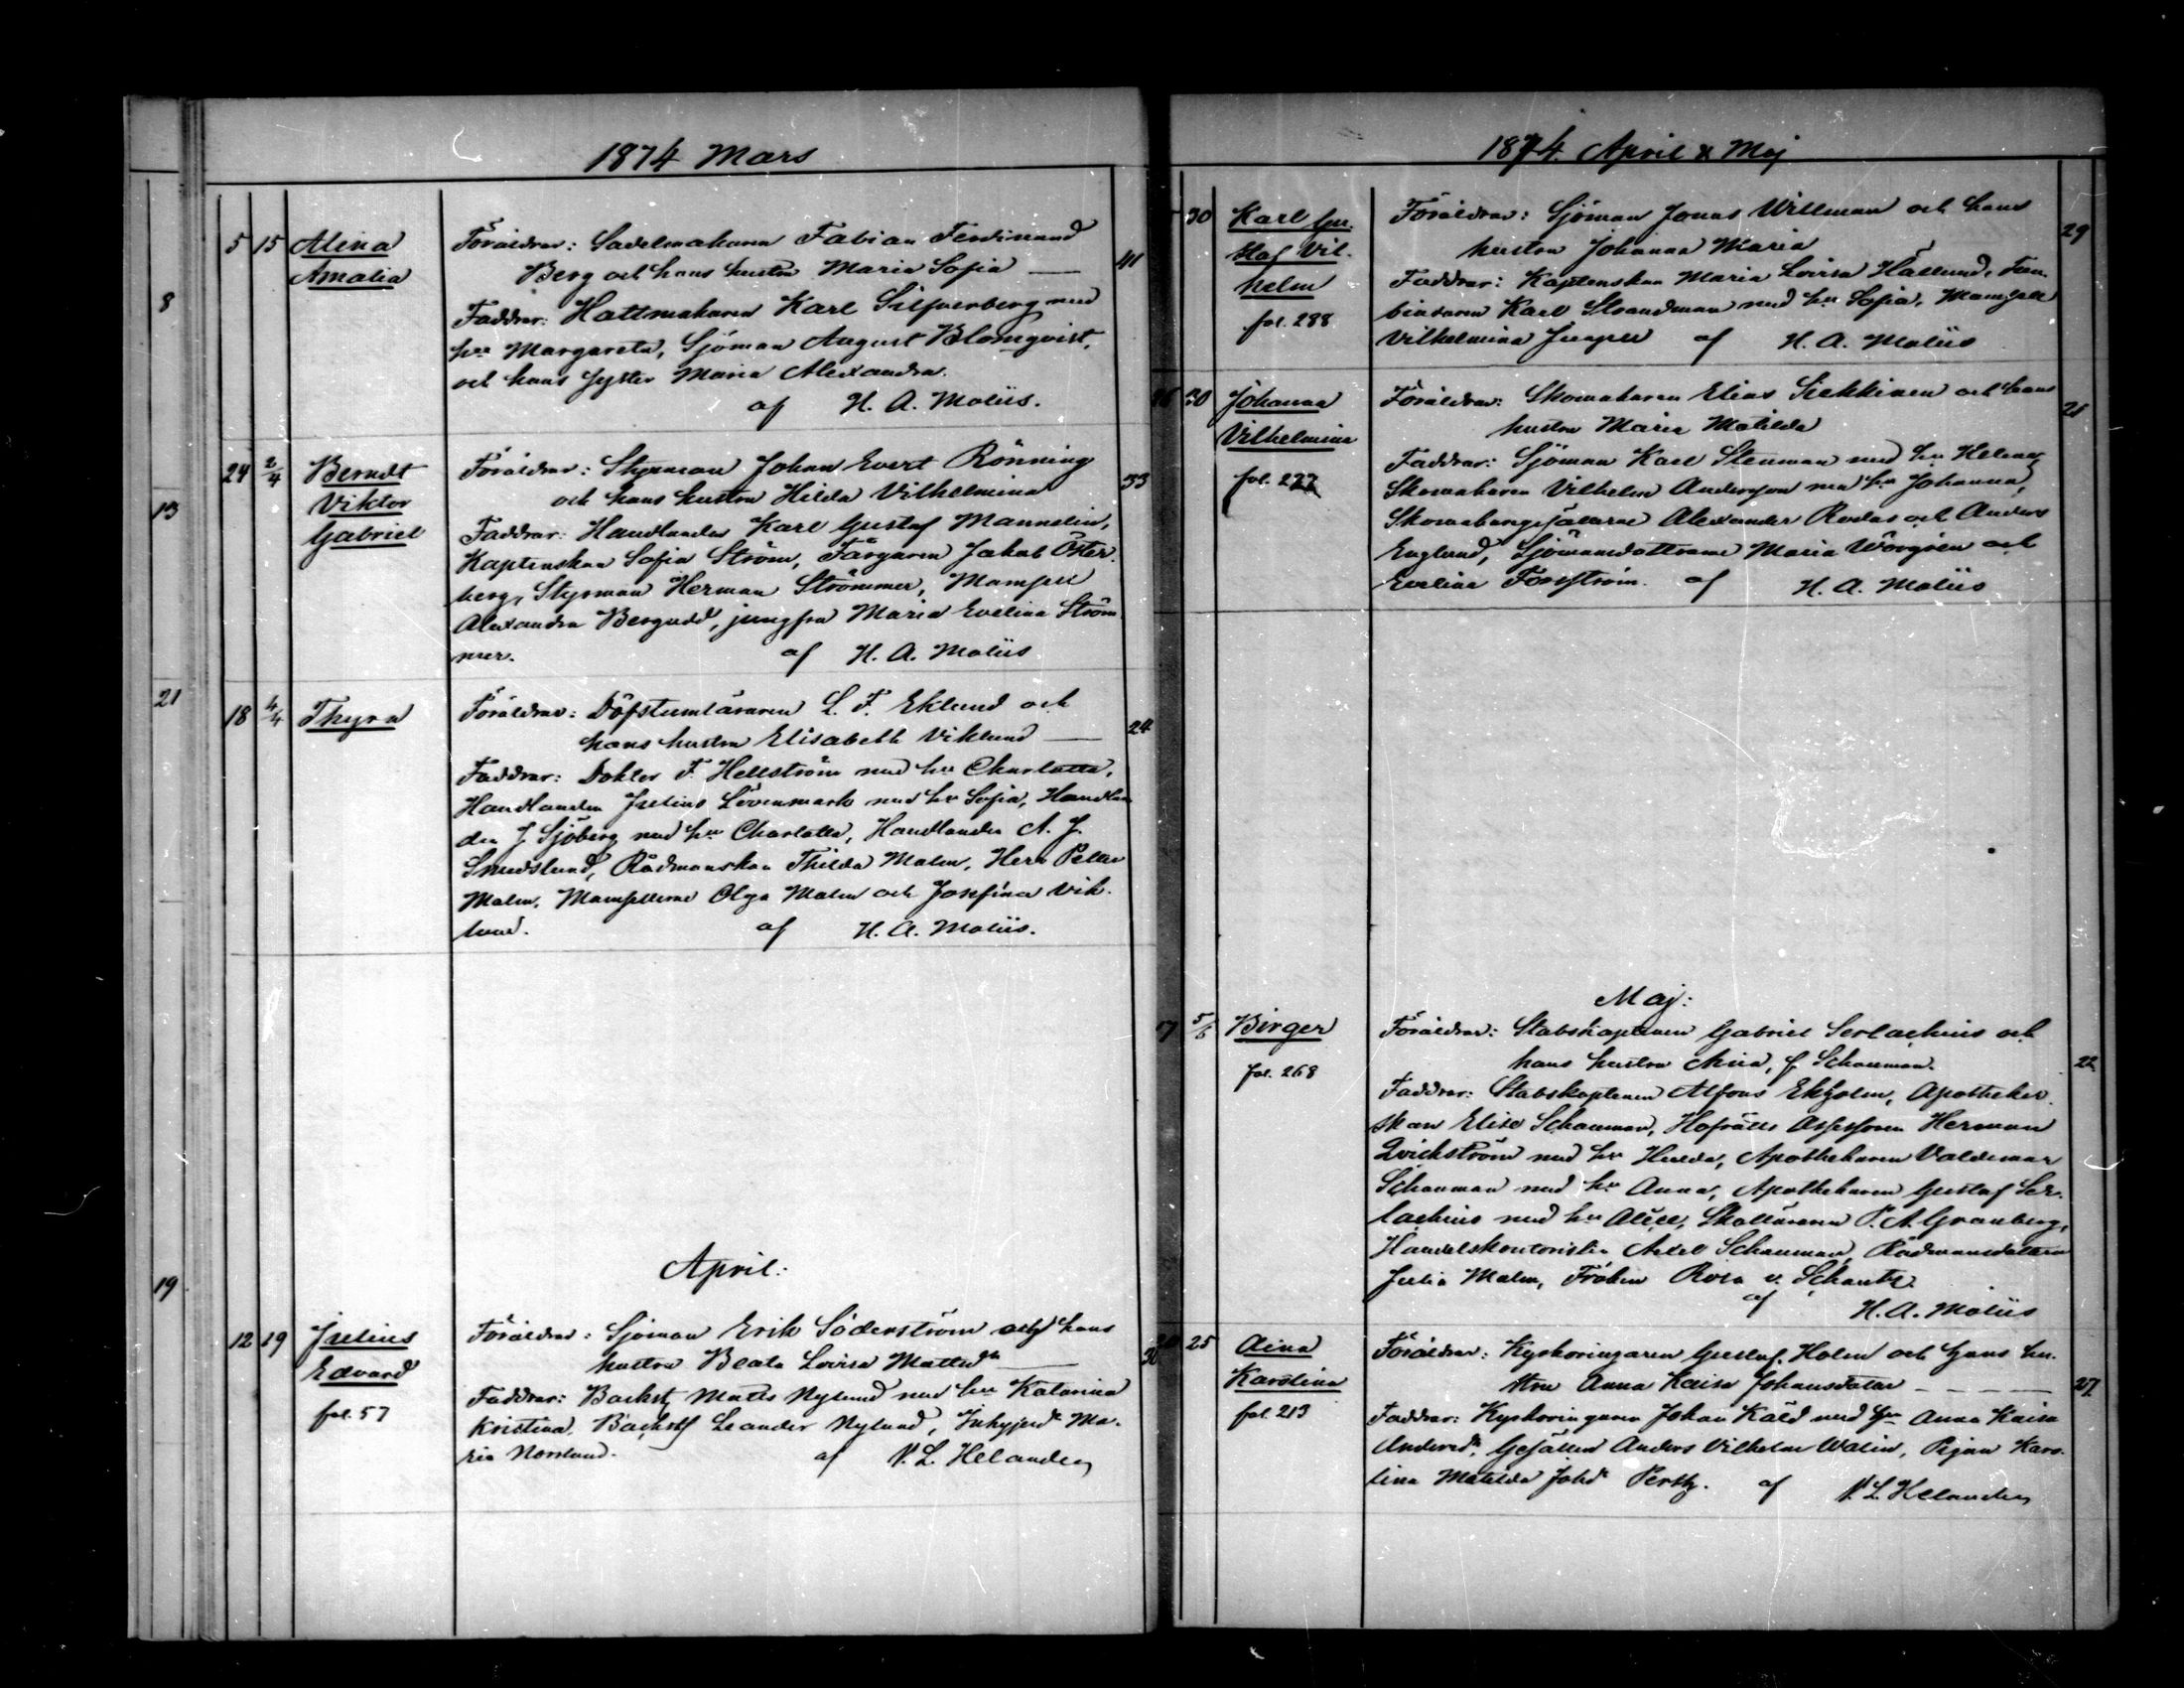 1874 Mars
8
5 15 Alina Föräldrar: Sadelmakaren Fabian Ferdinand
Amalia Berg och hans hustru Maria Sofia — 41
Faddrar: Hattmakaren Karl Silfverberg med
hu Margareta, Sjöman August Blomqvist,
och hans syster Maria Alexandra.
af H. A. Moliis.
13
24 2/4 Berndt Föräldrar: Styrman Johan Evert Rönning
Viktor och hans hustru Hilda Vilhelmina 33
Gabriel Faddrar: Handlanden Karl Gustaf Mannelin,
Kaptenskan Sofia Ström, Färgaren Jakob Öster-
berg, Styrman Herman Strömmer, Mamsell
Alexandra Bergudd, jungfru Maria Evelina Ström-
mer. af H. A. Moliis
21
18 4/4 Thyra Föräldrar: Döfstumläraren L. F. Eklund och
hans hustru Elisabeth Viklund — 24
Faddrar: Doktor F. Hellström med hu Charlotta,
Handlanden Julius Lövenmark med hu Sofia, Handlan-
den J. Sjöberg med hu Charlotta, Handlanden A. J.
Smedslund, Rådmanskan Thilda Malm, Herr Petter
Malm, Mamsellerne Olga Malm och Josefina Vik-
lund. af H. A. Moliis.
April:
19
12 19 Julius Föräldrar: Sjöman Erik Söderström och hans
Edvard hustru Beata Lovisa Mattsdr — 30
fol. 57 Faddrar: Backst Matts Nylund med hu Katarina
Kristina, Backst Leander Nylund, Inhyjesd Ma-
ria Norrlund. af V. L. Helander
1874. April & Maj
30 Karl Gu- Föräldrar: Sjöman Jonas Willman och hans
staf Vil- hustru Johanna Maria 29
helm Faddrar: Kaptenskan Maria Lovisa Hallund,
fol. 288 Karl Strandman med hu Sofia, Mamsell
Vilhelmina af H. A. Moliis
26 30 Johanna Föräldrar: Skomakaren Elias Siekkinen och hans
Vilhelmina hustru Maria Matilda 21
fol. 277 Faddrar: Sjöman Karl Stenman med hu Helena,
Skomakaren Vilhelm Andersson med hu Johanna,
Skomakaregesällerne Alexander Rodas och Anders
Englund, Sjömansdottrarne Maria och
Evelina Forsström. af H. A. Moliis
Maj:
7 5/6 Birger Föräldrar: Stabskaptenen Gabriel Serlachius och
hans hustru Aina, f. Schauman. 22
fol. 268 Faddrar: Stabskaptenen Alfons Ekholm, Apotheker-
skan Elise Schauman, Hofrätts Assessoren Herman
Qvickström med hu Hulda, Apothekaren Valdemar
Schauman med hu Anna, Apothekaren Gustaf Ser-
lachius med hu Alice, Skolläraren P. A. Granberg,
Handelskontoristen Axel Schauman, Rådmansdottern
Julia Malm, Fröken Rosa v. Schantz.
af H. A. Moliis
20 25 Aina Föräldrar: Kyrkoringaren Gustaf Holm och hans hu-
Karolina stru Anna Kaisa Johansdotter — 27
fol. 213 Faddrar: Kyrkoringaren Johan Kåld med hu Anna Kaisa
Andersdr, Gesällen Anders Vilhelm Walin, Pigan Karo-
lina Matilda Johdr af V. L. Helander